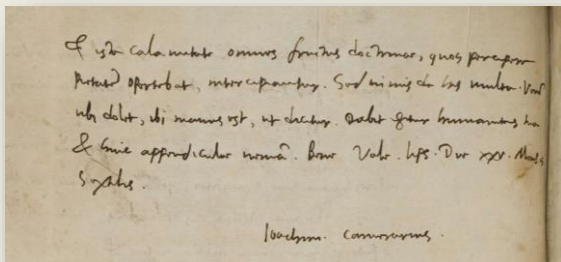 & ista calamitate omnes fructus doctrinae, quos percipere
oportebat, intercipiantur. Sed nimis de his multa. Verum
ubi dolet, ibi manus est, ut dicitur. Dabit humanitas tua
& huic appendiculae veniam. Bene Vale. Lips. Die XXV. Mensis
Sextilis.
Ioachim. Camerarius.